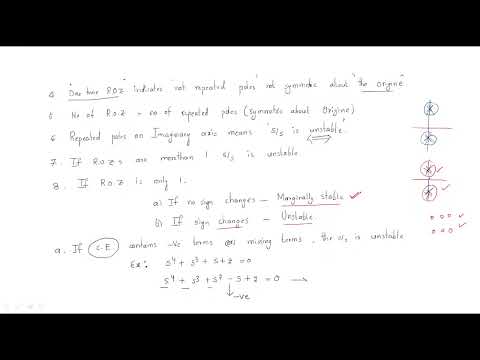 4 "One time R.O.Z" indicates "not repeated poles" not symmetric about "the origine"
5 No of R.O.Z = no of repeated poles (symmetric about Origine)
6 Repeated poles on Imaginary axis means "S/s is unstable."
7. If R.O.Z s are morethan 1 s/s is unstable.
8. If R.O.Z is only 1.
a) If no sign changes - Marginally stable
b) If sign changes - Unstable.
9. If C.E. contains -ve terms or missing terms, the s/s is unstable
Ex: s⁴ + s³ + s + 2 = 0
s⁴ + s³ + s² - s + 2 = 0
-ve